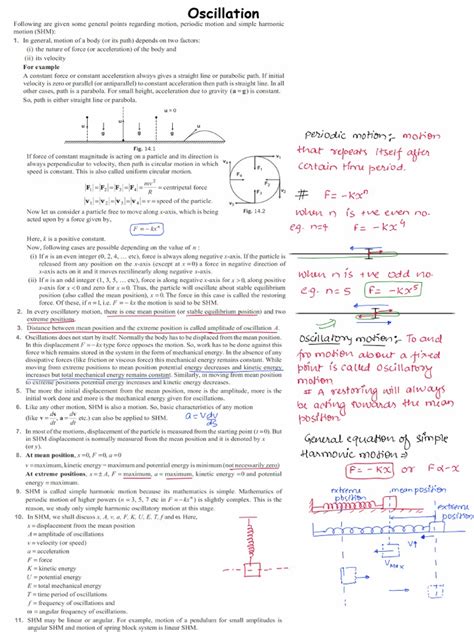 Oscillation
Following are given some general points regarding motion, periodic motion and simple harmonic
motion (SHM):
1. In general, motion of a body (or its path) depends on two factors:
(i) the nature of force (or acceleration) of the body and
(ii) its velocity
For example
A constant force or constant acceleration always gives a straight line or parabolic path. If initial
velocity is zero or parallel (or antiparallel) to constant acceleration then path is straight line. In all
other cases, path is a parabola. For small height, acceleration due to gravity (a = g) is constant.
So, path is either straight line or parabola.
u = 0
u
u
u
Fig. 14.1
If force of constant magnitude is acting on a particle and its direction is
always perpendicular to velocity, then path is circular motion in which
speed is constant. This is also called uniform circular motion.
|F₁| = |F₂| = |F₃| = |F₄| = mv²/R = centripetal force
|v₁| = |v₂| = |v₃| = |v₄| = v = speed of the particle.
Now let us consider a particle free to move along x-axis, which is being
acted upon by a force given by,
Fig. 14.2
F = – kxⁿ
Here, k is a positive constant.
Now, following cases are possible depending on the value of n :
(i) If n is an even integer (0, 2, 4, ... etc), force is always along negative x-axis. If the particle is
released from any position on the x-axis (except at x = 0) a force in negative direction of
x-axis acts on it and it moves rectilinearly along negative x-axis.
(ii) If n is an odd integer (1, 3, 5, ... etc), force is along negative x-axis for x > 0, along positive
x-axis for x < 0 and zero for x = 0. Thus, the particle will oscillate about stable equilibrium
position (also called the mean position), x = 0. The force in this case is called the restoring
force. Of these, if n = 1, i.e. F = – kx the motion is said to be SHM.
2. In every oscillatory motion, there is one mean position (or stable equilibrium position) and two
extreme positions.
3. Distance between mean position and the extreme position is called amplitude of oscillation A.
4. Oscillations does not start by itself. Normally the body has to be displaced from the mean position.
In this displacement F = – kx type force opposes the motion. So, work has to be done against this
force which remains stored in the system in the form of mechanical energy. In the absence of any
dissipative forces (like friction or viscous force) this mechanical energy remains constant. While
moving from extreme positions to mean position potential energy decreases and kinetic energy
increases but total mechanical energy remains constant. Similarly, in moving from mean position
to extreme positions potential energy increases and kinetic energy decreases.
5. The more the initial displacement from the mean position, more is the amplitude, more is the
initial work done and more is the mechanical energy given for oscillations.
6. Like any other motion, SHM is also a motion. So, basic characteristics of any motion
(like v = dx/dt, a = dv/dt etc.) can also be applied to SHM.
a = Vdv/dx
7. In most of the motions, displacement of the particle is measured from the starting point (t = 0). But
in SHM displacement is normally measured from the mean position and it is denoted by x
(or y).
8. At mean position, x = 0, F = 0, a = 0
v = maximum, kinetic energy = maximum and potential energy is minimum (not necessarily zero)
At extreme positions, x = ± A, F = maximum, a = maximum, kinetic energy = 0 and potential
energy = maximum.
9. SHM is called simple harmonic because its mathematics is simple. Mathematics of
periodic motion of higher powers (n = 3, 5, 7 etc in F = – kxⁿ) is slightly complex. This is the
reason, we study only simple harmonic motion at this stage.
10. In SHM, we shall discuss x, A, v, a, F, K, U, E, T, f and ω. Here,
x = displacement from the mean position
A = amplitude of oscillations
v = velocity (or speed)
a = acceleration
F = force
K = kinetic energy
U = potential energy
E = total mechanical energy
T = time period of oscillations
f = frequency of oscillations and
ω = angular frequency of oscillations.
11. SHM may be linear or angular. For example, motion of a pendulum for small amplitudes is
angular SHM and motion of spring block system is linear SHM.
Periodic motion:- motion
that repeats itself after
certain time period.
# F = -kxⁿ
when n is +ve even no.
e.g. n=4 F = -kx⁴
when n is +ve odd no
e.g. n = 5 F = -kx⁵
Oscillatory motion:- To and
fro motion about a fixed
point is called Oscillatory
motion
* A restoring will always
be acting towards the mean
position.
General equation of Simple
Harmonic motion ⇒
F = -Kx or F α -x
extreme position
mean position
extreme position
V↑
VMax